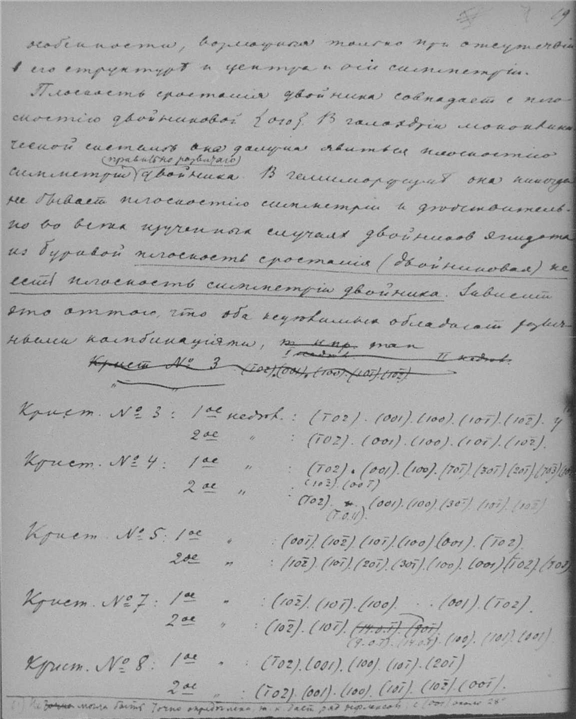 19
особенности, возможныя только при отсутствіи
в его структурѣ и центра и оси симметріи.
Плоскость сростанія двойника совпадаетъ с плос-
костію двойниковой {010}. В голоэдріи моноклини-
ческой системы она должна явиться плоскостію
(правильно развитаго)
симметріи двойника. В гемиморфизмѣ она никогда
не бываетъ плоскостію симметріи и дѣйствитель-
но во всѣхъ изученныхъ случаях двойников эпидота
из буровой плоскость сростанія (двойниковая) не
есть плоскость симметріи двойника. Зависитъ
это оттого, что оба недѣлимыя обладаютъ различ-
ными комбинаціями, так
I недѣл. II недѣл.
Крист № 3 (1̄02)(001).(100).(101̄)(102̄)
Крист. № 3: 1ое недѣл. : (1̄02). (001).(100).(101̄).(102̄).
2ое " : (1̄02). (001).(100).(101̄).(102̄).
Крист. № 4: 1ое " : (1̄02). (001).(100).(101̄)(301̄)(201̄)
(102̄).(001̄)
2ое " : (1̄02). (001).(100).(301̄).(101̄).(102̄)
Крист. № 5: 1ое " : (001̄).(102̄)(101̄)(100)(001).(1̄02)
2ое " : (102̄).(101̄).(201̄).(301̄).(100).(001)(1̄02)
Крист. № 7: 1ое " : (102̄).(101̄).(100). . (001).(1̄02).
2ое " : (102̄).(101̄). (100).(001)
Крист. № 8: 1ое " : (1̄02).(001).(100).(101̄).(201̄)
2ое " : (1̄02).(001).(100).(101̄).(102̄).(001̄)
могла быть точно опредѣлена, т. к. даетъ ряд рефлексов, с (001) около 28°